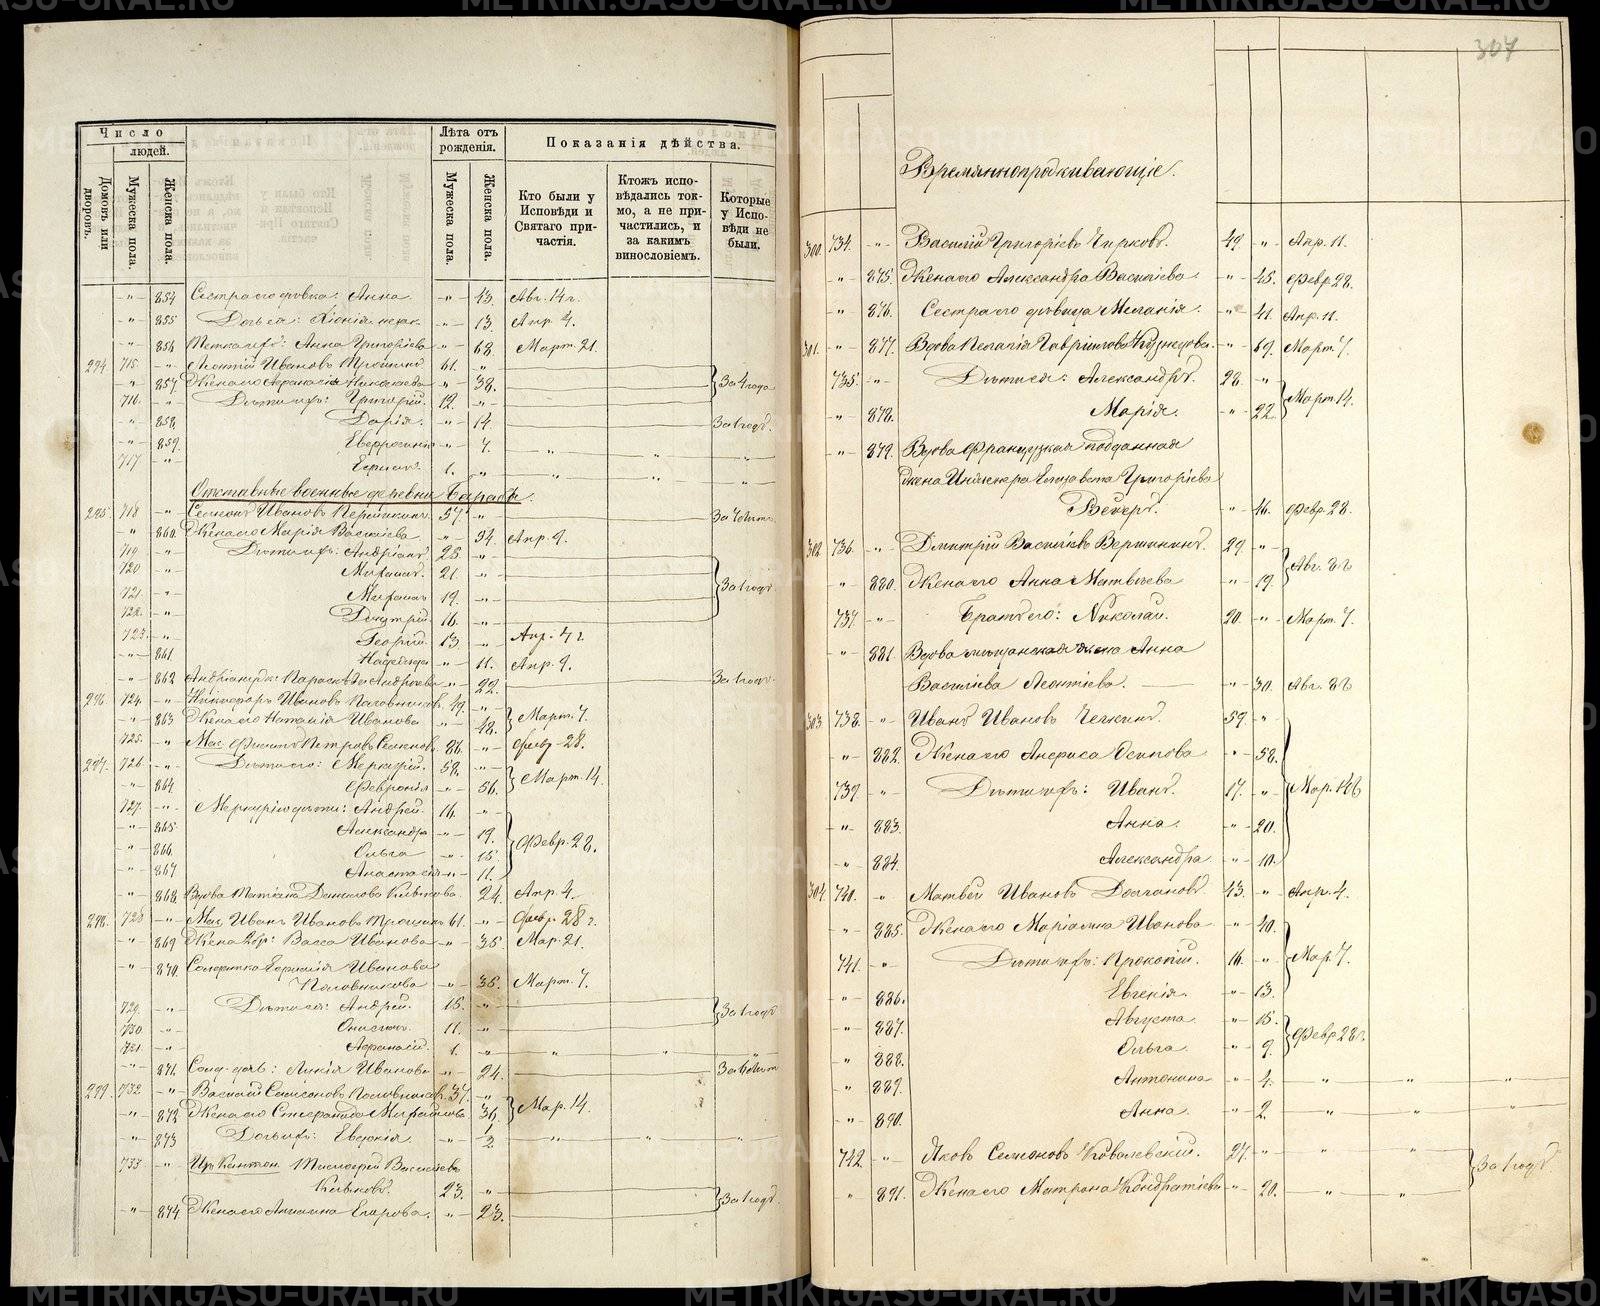 Число
людей.
Домовъ или дворовъ.
Мужеска пола.
Женска пола.
Лѣта отъ рожденія.
Мужеска пола.
Женска пола.
Показанія дѣйства.
Кто были у Исповѣди и Святаго причастія.
Ктожъ исповѣдались токмо, а не причастились, и за какимъ винословіемъ.
Которые у Исповѣди не были.
-"- 854 Сестра его дѣвка: Анна -"- 43. Авг. 14 г.
-"- 855 Дочь ея: -"- 13. Апр. 4.
-"- 856 Анна Григорьева -"- 68. Март. 21.
294 715 -"- Леонтій Ивановъ Трошинъ 61. "
-"- 857 Жена его Афанасія Николаева -"- 38. За 4 года
716. " Дѣти ихъ: Григорій. 12. -"-
-"- 858. Дарія. -"- 14. За 1 годъ.
-"- 859. -"- 7. " " "
717 -"- 1. " " " "
Отставные военные деревни
295 718 -"- Ивановъ 57. -"-
" 860. Жена его Марія Васильева -"- 54. Апр. 9.
719. -"- Дѣти ихъ: Андріанъ 25. -"-
720 -"- 21 -"- За 1 годъ
721. -"- 19. -"-
722. -"- Дмитрій 16. -"-
723. -"- Георгій. 13 " Апр. 4 г
-"- 861 Надежда -"- 11. Апр. 9.
-"- 862 Параскева Андреева 22. За 1 годъ
296 724. -"- Никифоръ Ивановъ Половниковъ 49. -"-
-"- 863 Жена его Наталія Иванова 48. Март. 7.
725. -"- Мас. Петровъ 86. -"- Февр. 28.
297. 726 -"- Дѣти его: Меркурій. 58. -"-
-"- 864 Февронія -"- 56. Март. 14.
727. -"- Меркурія дѣти: Андрей. 16. -"-
-"- 865 Александра -"- 19.
-"- 866. Ольга -"- 15. Февр. 28.
-"- 867 Анастасія -"- 11.
-"- 868. Вдова Данилова 24. Апр. 4.
298. 728 -"- Мас. Иванъ Ивановъ Трошинъ 61. -"- Февр. 28 г.
-"- 869 Жена 2 бр: Васса Иванова -"- 35 Мар. 21.
-"- 870. Солдатка Иванова
Половникова -"- 35. Март. 7.
729. -"- Дѣти ея: Андрей. 15. -"-
730. -"- 11. -"- За 1 годъ
731. -"- Афанасій. 1. " " " "
-"- 871 Иванова -"- 24.
299. 732 -"- Василій Половниковъ. 37. -"-
-"- 872 Жена его 36. Мар. 14.
-"- 873 Дочь ихъ: Евдокія. -"- -"- " "
733 -"- Васильевъ
23. "
-"- 874 Жена его Егорова. -"- 23. За 1 годъ
307
Времяннопроживающіе.
300. 734. -"- Василій Григорьевъ Чирковъ. 49. -"- Апр. 11.
-"- 875. Жена его Александра Васильева. -"- 45. Февр. 28.
-"- 876. Сестра его дѣвица Меланія. -"- 41. Апр. 11.
301. -"- 877. Вдова Пелагія Гаврилова Кузнецова. -"- 69. Март. 7.
735. -"- Дѣти ея: Александръ. 28. -"-
-"- 878. Марія. -"- 22. Март. 14.
-"- 879. Вдова Французкая подданная
жена Инженера Елизавета Григорьева
-"- 46. Февр. 28.
302. 736. -"- Дмитрій Васильевъ Вершининъ. 29. -"-
-"- 880. Жена его Анна Матвѣева -"- 19. Авг. 8 г
737 -"- Братъ его: Николай. 20. -"- Март. 7.
-"- 881. Вдова мѣщанская жена Анна
Васильева Леонтіева. -"- 30. Авг. 8 г
303 738. -"- Иванъ Ивановъ 59. -"-
-"- 882. Жена его Анфиса Осипова -"- 58.
739 -"- Дѣти ихъ: Иванъ. 17. -"- Мар. 14 г
-"- 883. Анна. -"- 20.
-"- 884. Александра. -"- 10.
304. 740. " Матвѣй Ивановъ Долгановъ. 43. " Апр. 4.
-"- 885. Жена его Маріанна Иванова -"- 40.
741. -"- Дѣти ихъ: Прокопій. 16. -"- Мар. 7.
-"- 886. Евгенія. -"- 13.
-"- 887. Августа. -"- 15.
-"- 888. Ольга. -"- 9. Февр. 28 г.
-"- 889. Антонина -"- 4. " " "
-"- 890. Анна. -"- 2. " " "
742. -"- Яковъ Семеновъ Ковалевскій. 27. -"- " "
" 891. Жена его Матрона Кондратіева -"- 20. " " За 1 годъ
METRIKI.GASU-URAL.RU